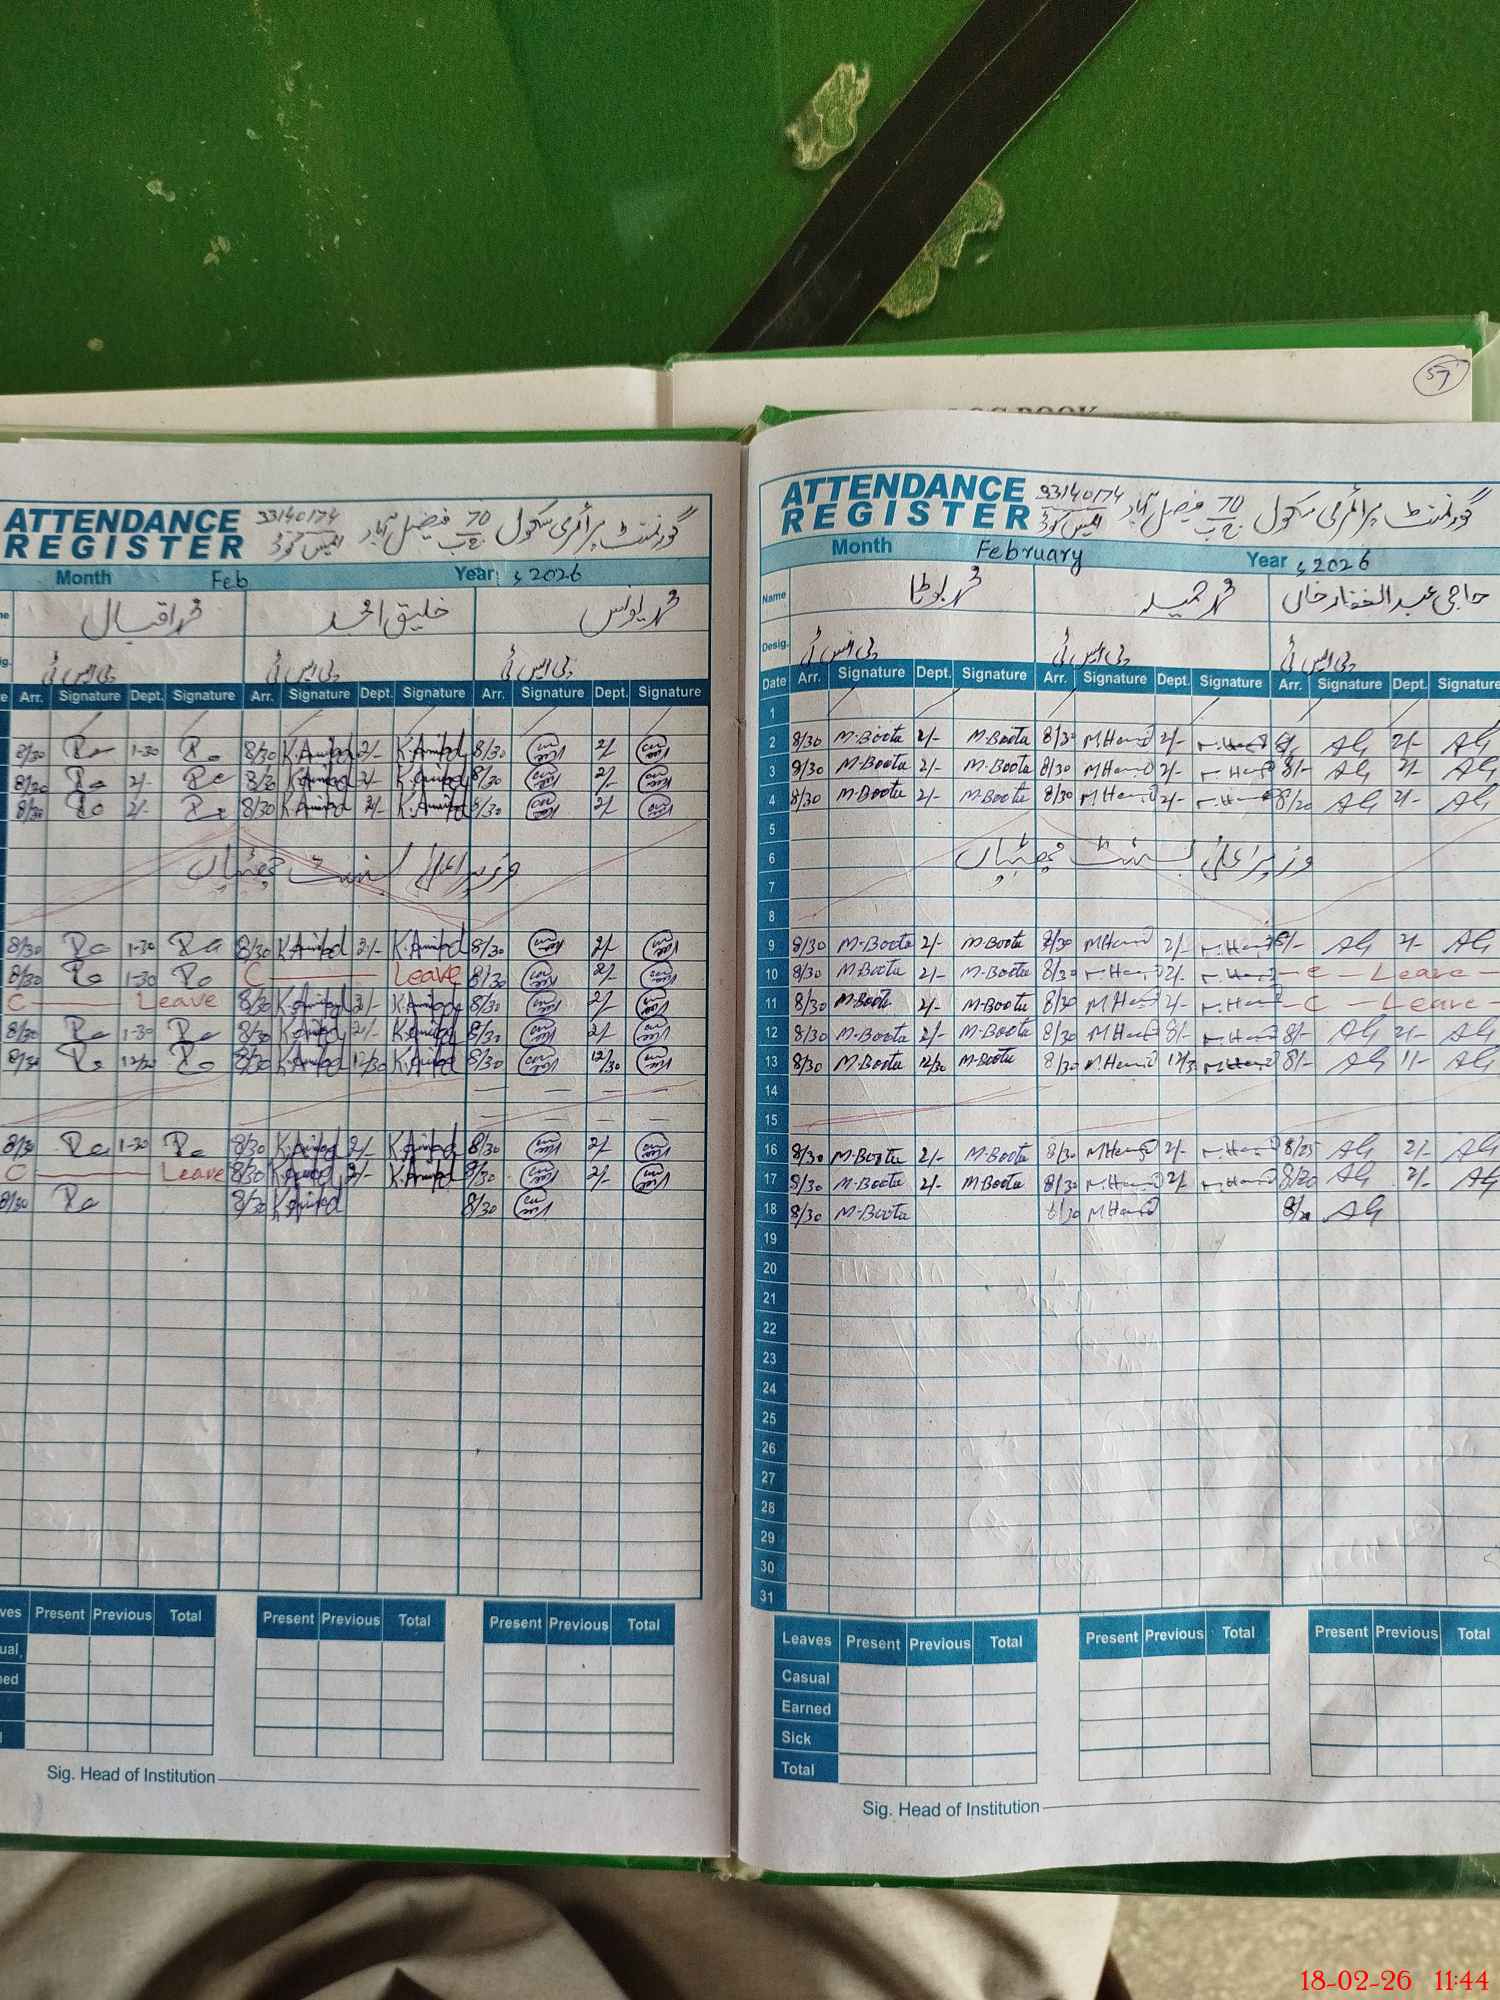 57
LOG BOOK
ATTENDANCE REGISTER
گورنمنٹ پرائمری سکول 70 ج ب فیصل آباد
ایمس کوڈ 33140174
Month Feb Year 2026ء
محمد اقبال خلیق امجد محمد یونس
پی ایس ٹی پی ایس ٹی پی ایس ٹی
Arr. Signature Dept. Signature Arr. Signature Dept. Signature Arr. Signature Dept. Signature
8/30 1-30 8/30 K.Amjad 2/- K.Amjad 8/30 2/-
8/30 2/- 8/30 K.Amjad 2/- K.Amjad 8/30 2/-
8/30 2/- 8/30 K.Amjad 2/- K.Amjad 8/30 2/-
وزیراعلیٰ بسنت چھٹیاں
8/30 1-30 8/30 K.Amjad 2/- K.Amjad 8/30 2/-
8/30 1-30 C Leave 8/30 2/-
C Leave 8/30 K.Amjad 2/- K.Amjad 8/30 2/-
8/30 1-30 8/30 K.Amjad 2/- K.Amjad 8/30 2/-
8/30 12/30 8/30 K.Amjad 12/30 K.Amjad 8/30 12/30
8/30 1-30 8/30 K.Amjad 2/- K.Amjad 8/30 2/-
C Leave 8/30 K.Amjad 2/- K.Amjad 8/30 2/-
8/30 8/30 K.Amjad 8/30
Present Previous Total Present Previous Total Present Previous Total
Sig. Head of Institution
ATTENDANCE REGISTER
گورنمنٹ پرائمری سکول 70 ج ب فیصل آباد
ایمس کوڈ 33140174
Month February Year 2026ء
Name محمد بوٹا محمد حمید حاجی عبدالغفار خاں
Desig. پی ایس ٹی پی ایس ٹی پی ایس ٹی
Date Arr. Signature Dept. Signature Arr. Signature Dept. Signature Arr. Signature Dept. Signature
1
2 8/30 M.Boota 2/- M.Boota 8/30 M.Hamid 2/- M.Hamid 8/- 2/-
3 8/30 M.Boota 2/- M.Boota 8/30 M.Hamid 2/- M.Hamid 8/- 2/-
4 8/30 M.Boota 2/- M.Boota 8/30 M.Hamid 2/- M.Hamid 8/20 2/-
5
6 وزیراعلیٰ بسنت چھٹیاں
7
8
9 8/30 M.Boota 2/- M.Boota 8/30 M.Hamid 2/- M.Hamid 8/- 2/-
10 8/30 M.Boota 2/- M.Boota 8/30 M.Hamid 2/- M.Hamid C Leave
11 8/30 M.Boota 2/- M.Boota 8/30 M.Hamid 2/- M.Hamid C Leave
12 8/30 M.Boota 2/- M.Boota 8/30 M.Hamid M.Hamid 8/- 2/-
13 8/30 M.Boota 12/30 M.Boota 8/30 M.Hamid M.Hamid 8/- 1/-
14
15
16 8/30 M.Boota 2/- M.Boota 8/30 M.Hamid 2/- M.Hamid 8/25 2/-
17 8/30 M.Boota 2/- M.Boota 8/30 M.Hamid 2/- M.Hamid 8/20 2/-
18 8/30 M.Boota M.Hamid
19
20
21
22
23
24
25
26
27
28
29
30
31
Leaves Present Previous Total Present Previous Total Present Previous Total
Casual
Earned
Sick
Total
Sig. Head of Institution
18-02-26 11:44